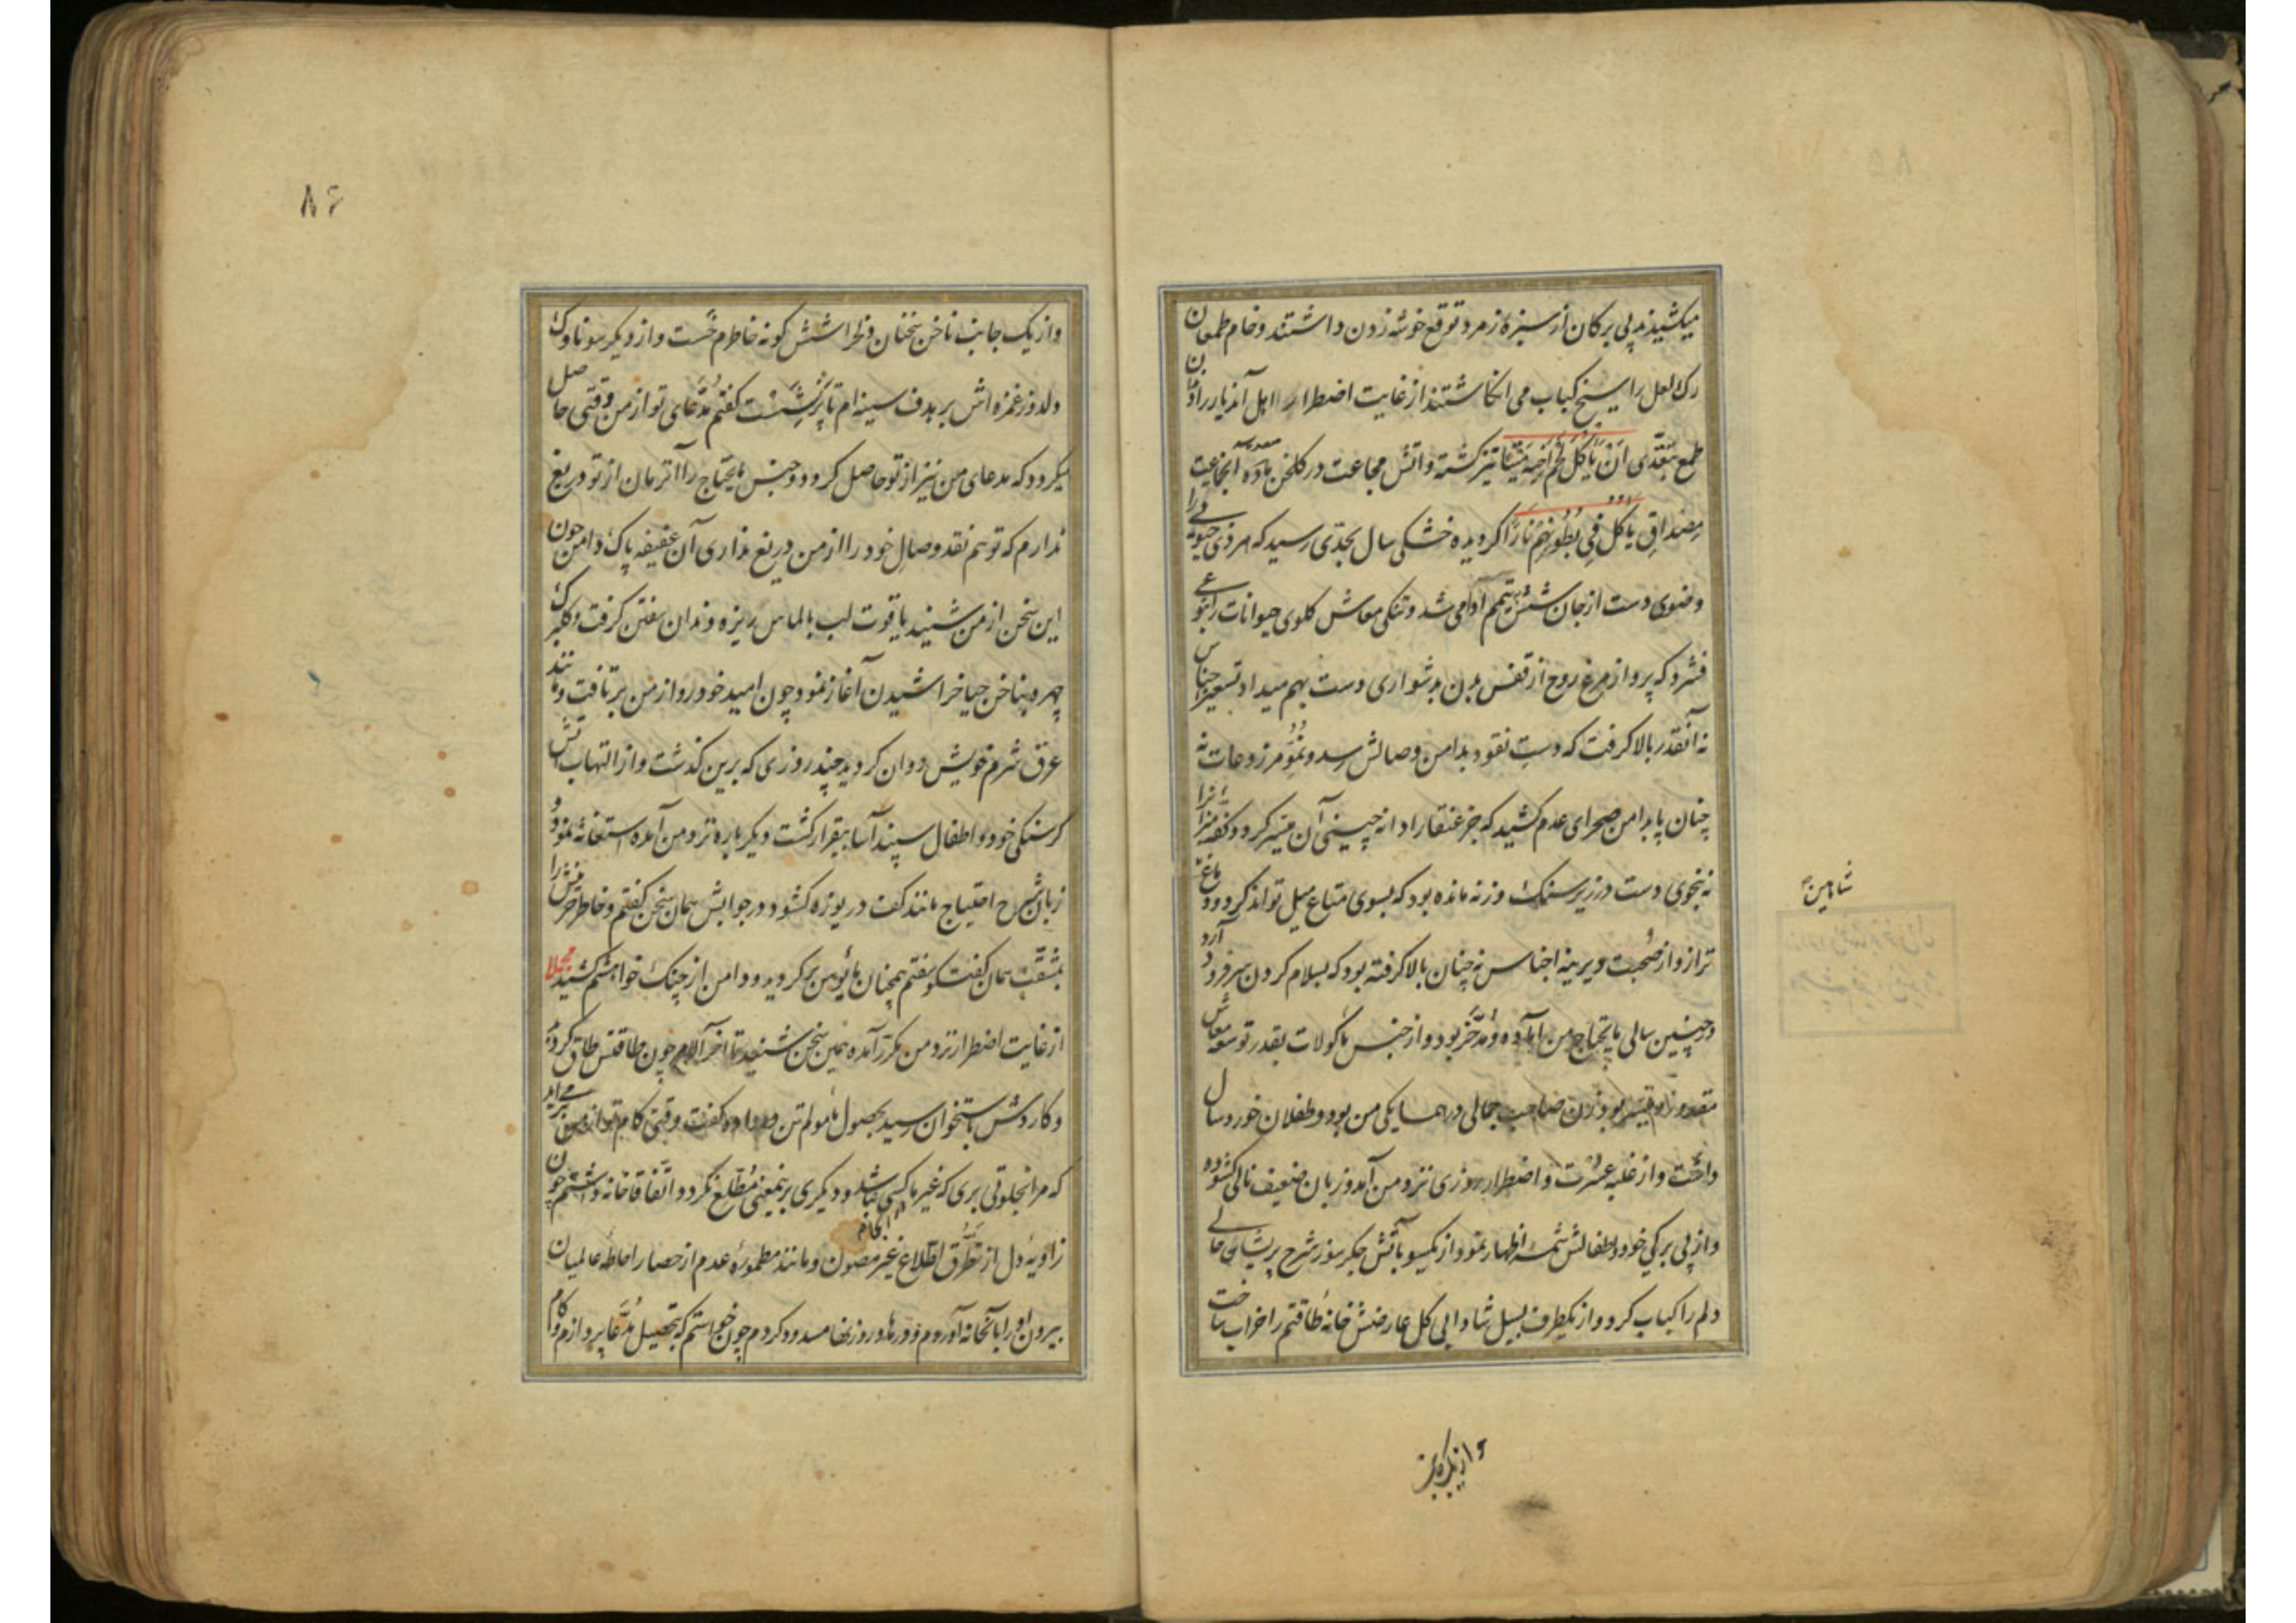 میکشیدند بی برکان از سبزهٔ زمرد توقع خوشه زدن داشتند و خام طمعان
رک لعل را سیخ کباب می انکاشتند از غایت اضطرار اهل آندیار را دندان
طمع بتعدّی اَنْ یَأکُلَ لَحْمَ اَخِیهِ مَیْتًا تیز کشته و آتش مجاعت در کلخن معدهٔ آنجماعت
مصداقِ یَأکُلُ فِی بُطُونِهِم نارًا کردیده خشکی سال بحدّی رسید که هر ذی حیوتی را
وضوی دست از جان شستن تیمم آدامی شد و تنکی معاش کلوی حیوانات را بنوعی
فشرد که پرواز مرغ روح از قفس بدن بدشواری دست بهم میداد تسعیر اجناس
نه آنقدر بالا کرفت که دستِ نقود بدامن وصالش رسد و نُمُوّ مزروعات نه
چنان پا بدامن صحرای عدم کشید که جز عنقا را دانه چینی آن میسر کردد و کفهٔ میزان را
نه بنحوی دست در زیر سنک وزنه مانده بود که بسوی متاع میل تواند کرد و دماغ
ترازو از صُحبت دیرینه اجناس نه چنان بالا کرفته بود که بسلام کردن سر فرود آرد
در چنین سالی مایحتاج من آماده و مُدَّخر بود و از جنس ماکولات بقدر توسعه معاش
مقدور و میسر بود زن صاحب جمالی در همسایکی من بود و طفلان خورد سال
داشت و از غلبه عسرت و اضطرار روزی نزد من آمد و زبان ضعیف نالی کشوده
و از بی برکی خود و اطفالش شمهٔ اظهار نمود از یکسو بآتش جکر سوز شرح پریشان حالی
دلم را کباب کرد و از یکطرف بسیل شادابی کل عارضش خانهٔ طاقتم را خراب ساخت
شاهین
و از یک جانب
۸۶
و از یک جانب ناخن سخنان دلخراشش کونه خاطرم خَست و از دیکر سو ناوک
دلدوز غمزه اش بر هدف سینه ام تا پر نشست کفتم مُدّعای تو از من وقتی حاصل
میکردد که مدعای من نیز از تو حاصل کردد و جنس مایحتاج را آنزمان از تو دریغ
ندارم که تو هم نقد وصالِ خود را از من دریغ نداری آن عفیفه پاک دامن چون
این سخن از من شنید یاقوت لب بالماس ریزه دندان سفتن کرفت و کلبرک
چهره بناخن حیا خراشیدن آغاز نمود چون امید خود رو از من برتافت و مانند
عرق شرم خویش دوان کردید چند روزی که برین کذشت و از التهاب آتش
کرسنکی خود و اطفال سپند آسا بیقرار کشت دیکر باره نزد من آمده استغاثه نمود و
زبان شرح احتیاج مانند کف دریوزه کشود در جوابش همان سخن کفتم و خاطر حزینش را
بمثقب همان کفت کو سفتم همچنان مأیوس برکردید و دامن از چنک خواهشم کشید مجملا
از غایت اضطرار نزد من مکرّر آمده همین سخن شنید تا آخر الامر چون طاقتش طاق کردید
و کاردش باستخوان رسید بحصول مأمولم تن در داده کفت وقتی کام تو از من برمی آید
که مرا بخلوتی بری که غیر ما کسی نباشد و دیکری برینمعنی مُطّلع نکردد اتفاقا خانه داشتم چون
زاویهٔ دل از تطَرُّق اطّلاع غیر مصون و مانند مطمورهٔ عدم از حصار احاطهٔ عالمیان
بیرون او را بآنخانه آوردم و درها و روزنها مسدود کردم چون خواستم که بتحصیل مُدَّعا پردازم و کام